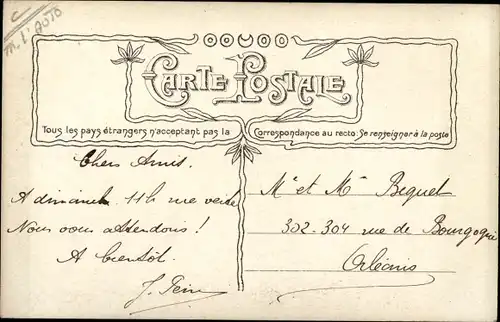 CARTE POSTALE
Tous les pays étrangers n'acceptant pas la Correspondance au recto Se renseigner à la poste
Chers Amis.
A dimanche 11h rue verte
Nous vous attendons !
A bientôt.
Mr et Me Bequet
302-304 rue de Bourgogne
Orléans